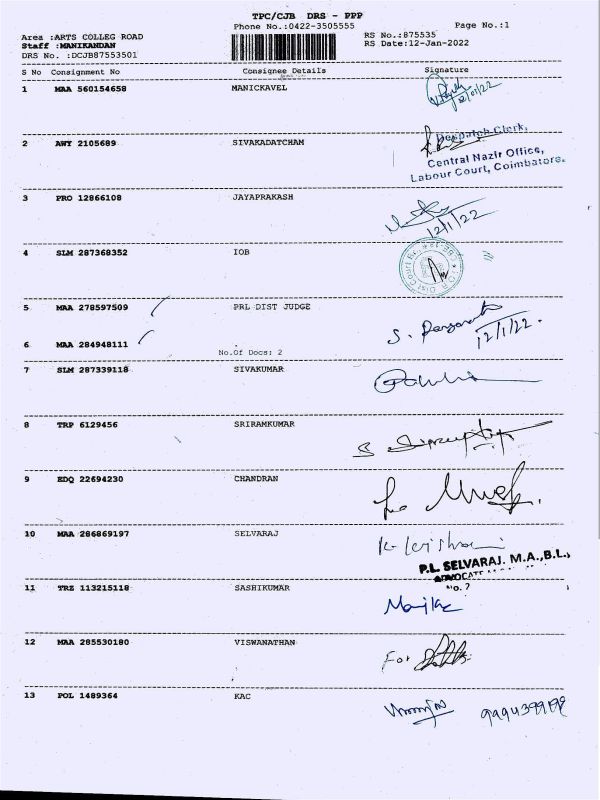 TPC/CJB DRS - PPP
Phone No.:0422-3505555
Page No.:1
Area :ARTS COLLEG ROAD
RS No.:875535
Staff :MANIKANDAN
RS Date:12-Jan-2022
DRS No. :DCJB87553501
S No Consignment No Consignee Details Signature
1 MAA 560154658 MANICKAVEL
12/01/22
2 AWY 2105689 SIVAKADATCHAM
Despatch Clerk,
Central Nazir Office,
Labour Court, Coimbatore.
3 PRO 12866108 JAYAPRAKASH
12/1/22
4 SLM 287368352 IOB
5 MAA 278597509 PRL DIST JUDGE
12/1/22.
6 MAA 284948111
No.Of Docs: 2
7 SLM 287339118 SIVAKUMAR
8 TRP 6129456 SRIRAMKUMAR
9 EDQ 22694230 CHANDRAN
10 MAA 286869197 SELVARAJ
P.L. SELVARAJ. M.A.,B.L.,
ADVOCATE
No. 7
11 TRZ 113215118 SASHIKUMAR
12 MAA 285530180 VISWANATHAN
For
13 POL 1489364 KAC